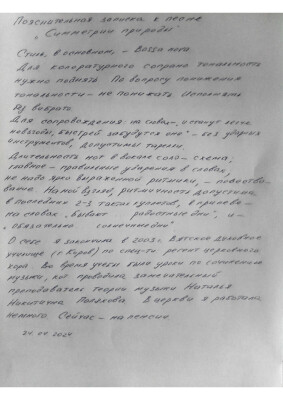 Пояснительная записка к песне
„Симметрии природы"
Стиль, в основном, – Bossa nova.
Для колоратурного сопрано тональность
нужно поднять. По вопросу понижения
тональности – не понижать. Исполнять
без вибрато.
Для сопровождения на словах „
невзгоды, быстрей забудутся они" – без ударных
инструментов, допустимы тарелки.
Длительность нот в вокале соло – схема;
главное – проведение ударения в словах,
не надо ярко выраженной ритмики, –
На мой взгляд, ритмичность допустима
в последних 2-3 тактах куплетов, в припеве –
на словах „бывают радостные дни", и –
„обязательно солнечные дни"
О себе: я закончила в 2003 г. Вятское духовное
училище (г. Киров) по специальности регент церковного
хора. Во время учебы были уроки по сочинению
музыки, их проводила замечательный
преподаватель теории музыки Наталья
Никитична Полякова. В церкви я работала
немного. Сейчас – на пенсии.
24.11.2024